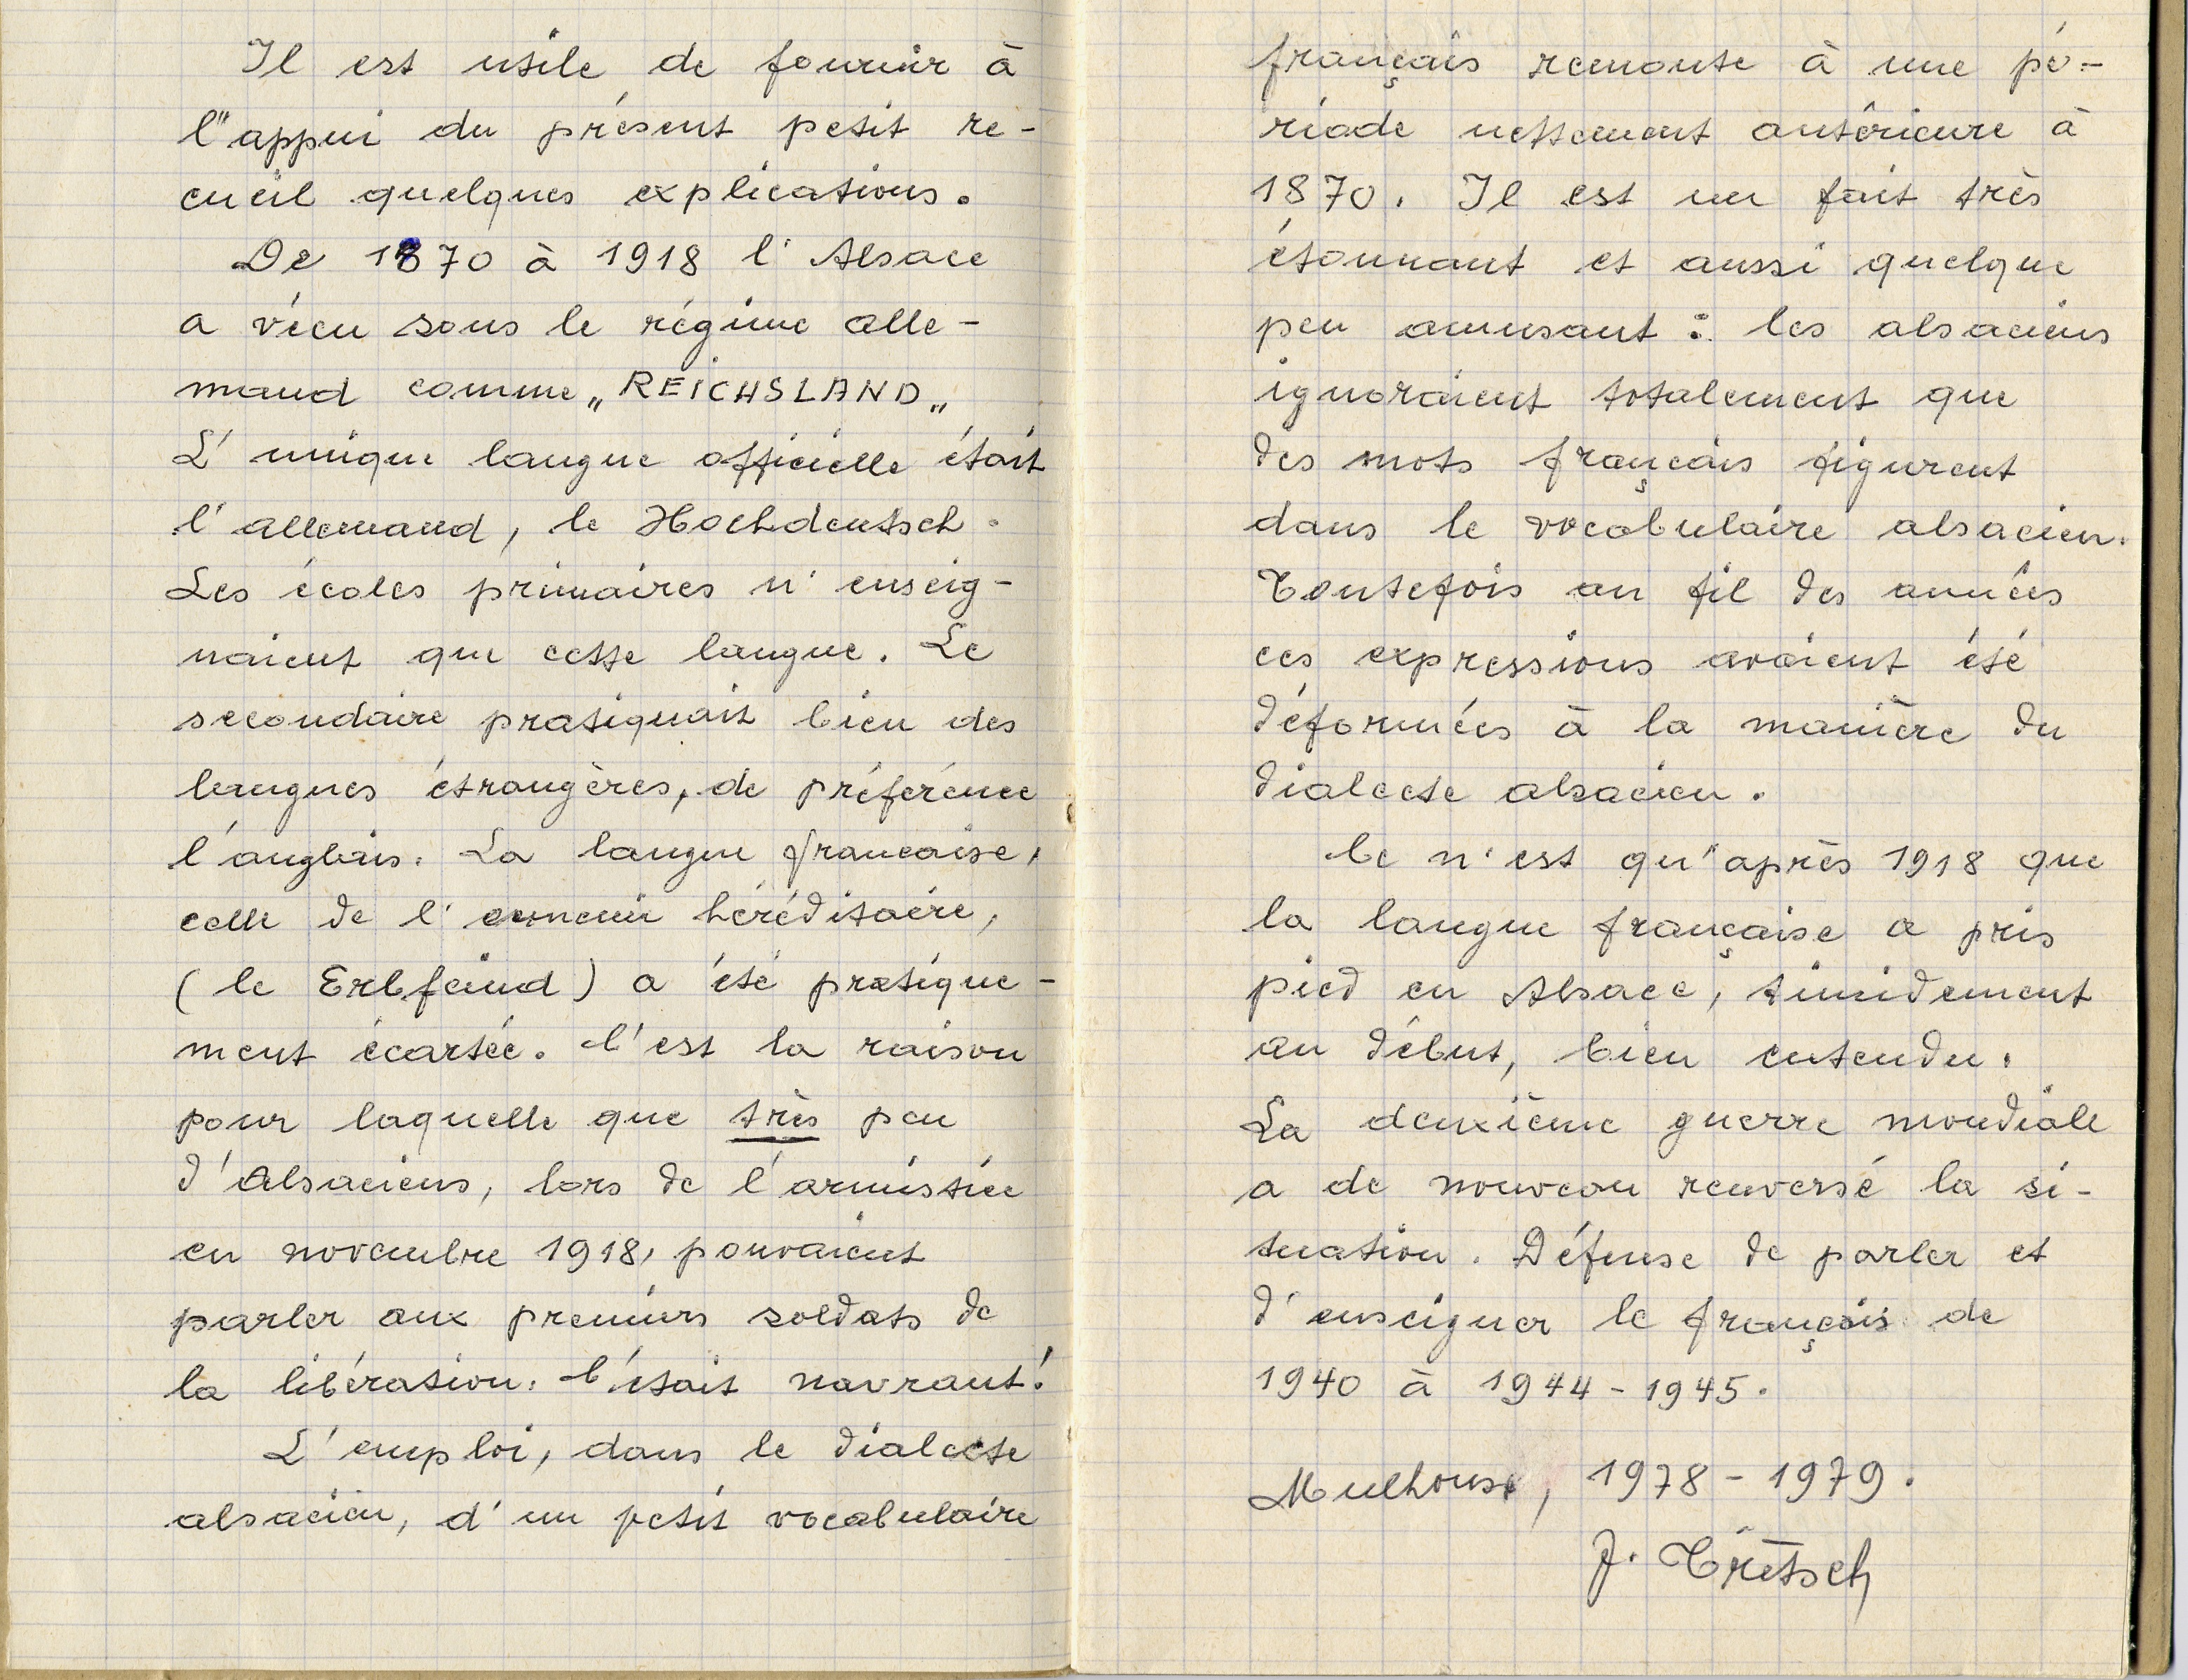 Il est utile de fournir à
l'appui du présent petit re-
cueil quelques explications.
De 1870 à 1918 l'Alsace
a vécu sous le régime alle-
mand comme „REICHSLAND„
L'unique langue officielle était
l'allemand, le Hochdeutsch.
Les écoles primaires n'enseig-
naient que cette langue. Le
secondaire pratiquait bien des
langues étrangères, de préférence
l'anglais. La langue francaise,
celle de l'ennemi héréditaire,
(le Erbfeind) a été pratique-
ment écartée. C'est la raison
pour laquelle que très peu
d'Alsaciens, lors de l'armistice
en novembre 1918, pouvaient
parler aux premiers soldats de
la libération. C'était navrant!
L'emploi, dans le dialecte
alsacien, d'un petit vocabulaire
français remonte à une pé-
riode nettement antérieure à
1870. Il est un fait très
étonnant et aussi quelque
peu amusant : les alsaciens
ignoraient totalement que
des mots français figurent
dans le vocabulaire alsacien.
Toutefois au fil des années
ces expressions avaient été
déformées à la manière du
dialecte alsacien.
Ce n'est qu'après 1918 que
la langue française a pris
pied en Alsace, timidement
au début, bien entendu.
La deuxième guerre mondiale
a de nouveau renversé la si-
tuation. Défense de parler et
d'enseigner le français de
1940 à 1944-1945.
Mulhouse, 1978-1979.
J. Trètsch